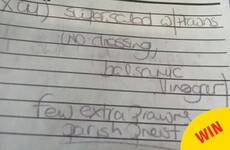 x(a1) supersalad w/prawns
(no dressing,
balsamic
vinegar)
few extra prawns
parish priest
WIN